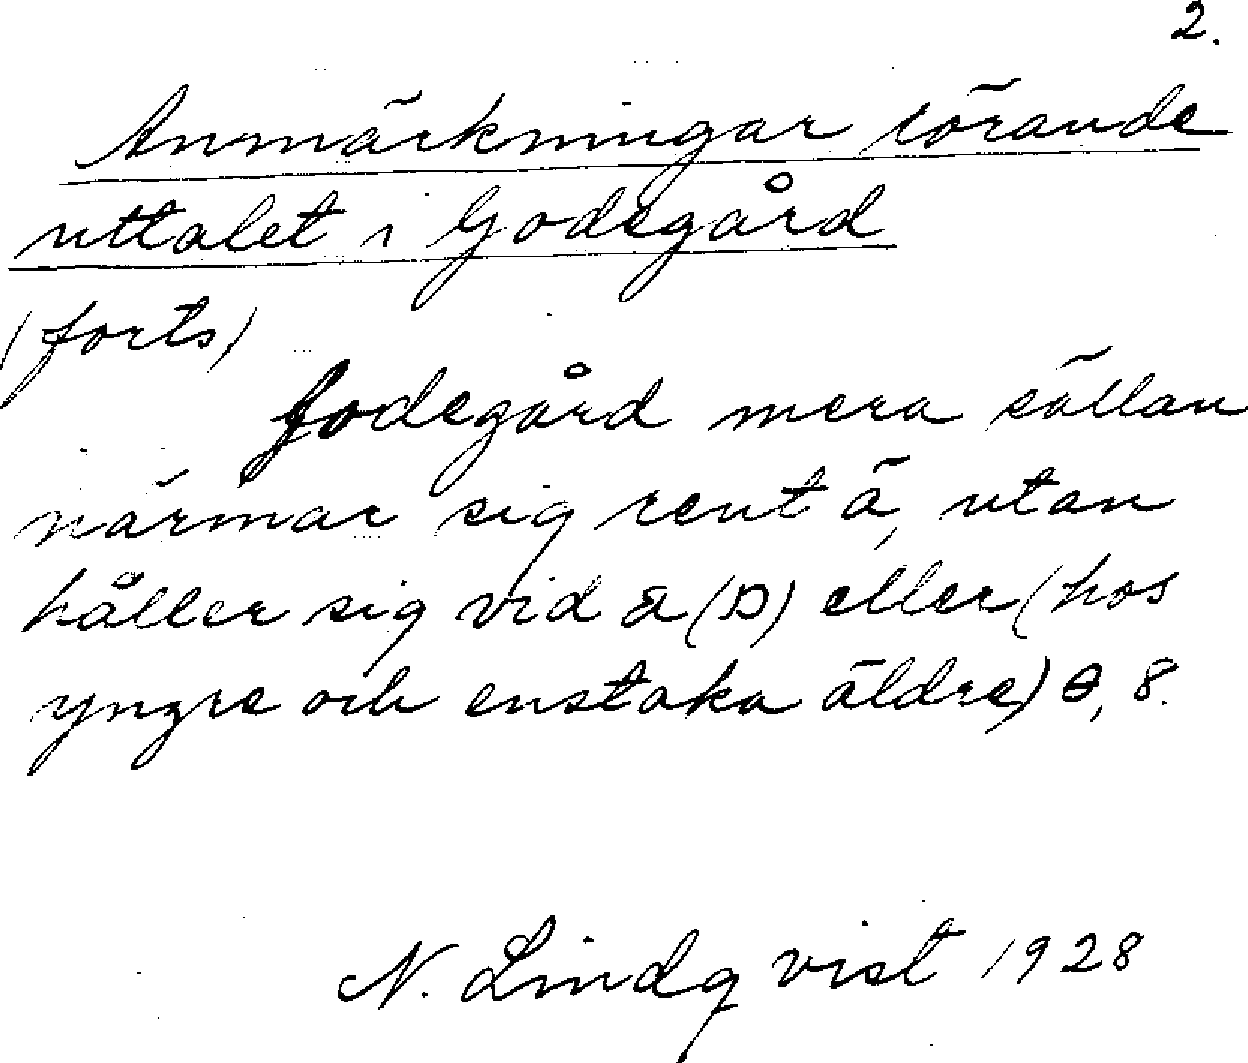 2.
Anmärkningar rörande
uttalet i Godegård
(forts)
Godegård mera sällan
närmar sig rent ä, utan
håller sig vid a eller (hos
yngre och enstaka äldre) ɵ, 8.
N. Lindqvist 1928